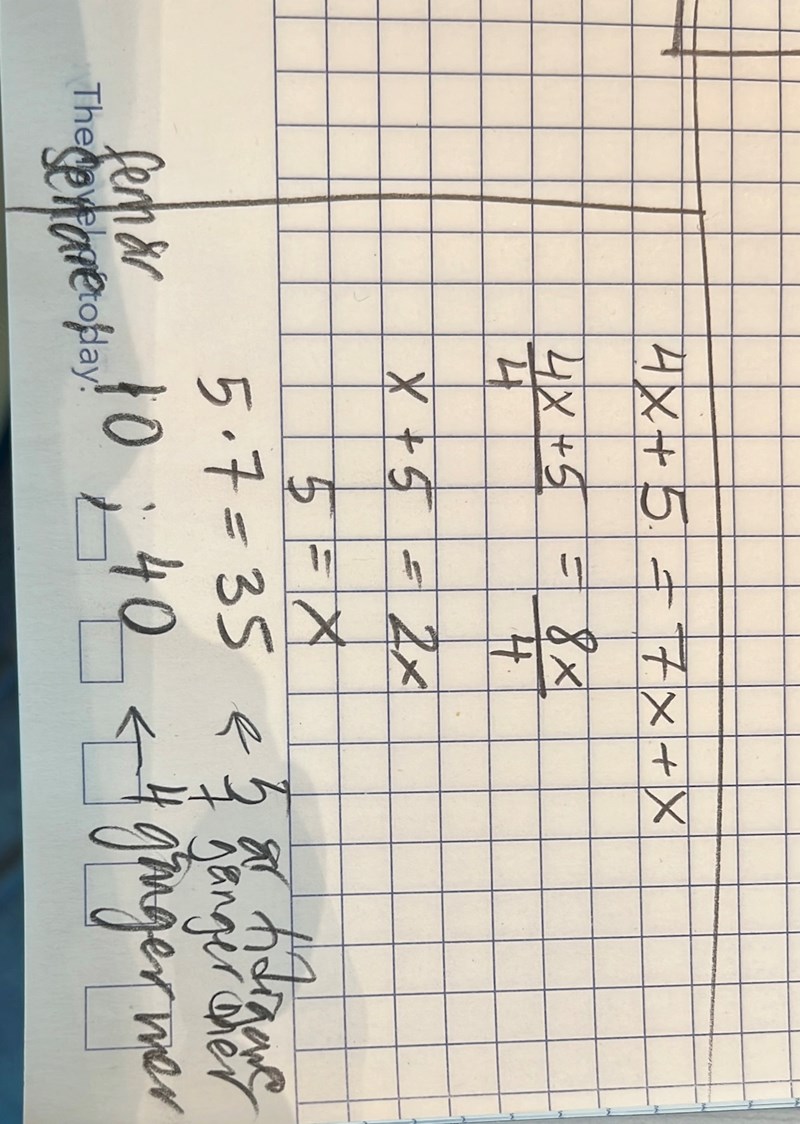 4x + 5 = 7x + x
4x + 5 = 8x
4 4
x + 5 = 2x
5 = x
5 · 7 = 35 ← 5 år tidigare
7 gånger mer
fem år 10 ; 40 ← 4 gånger mer
senare
The level of today: